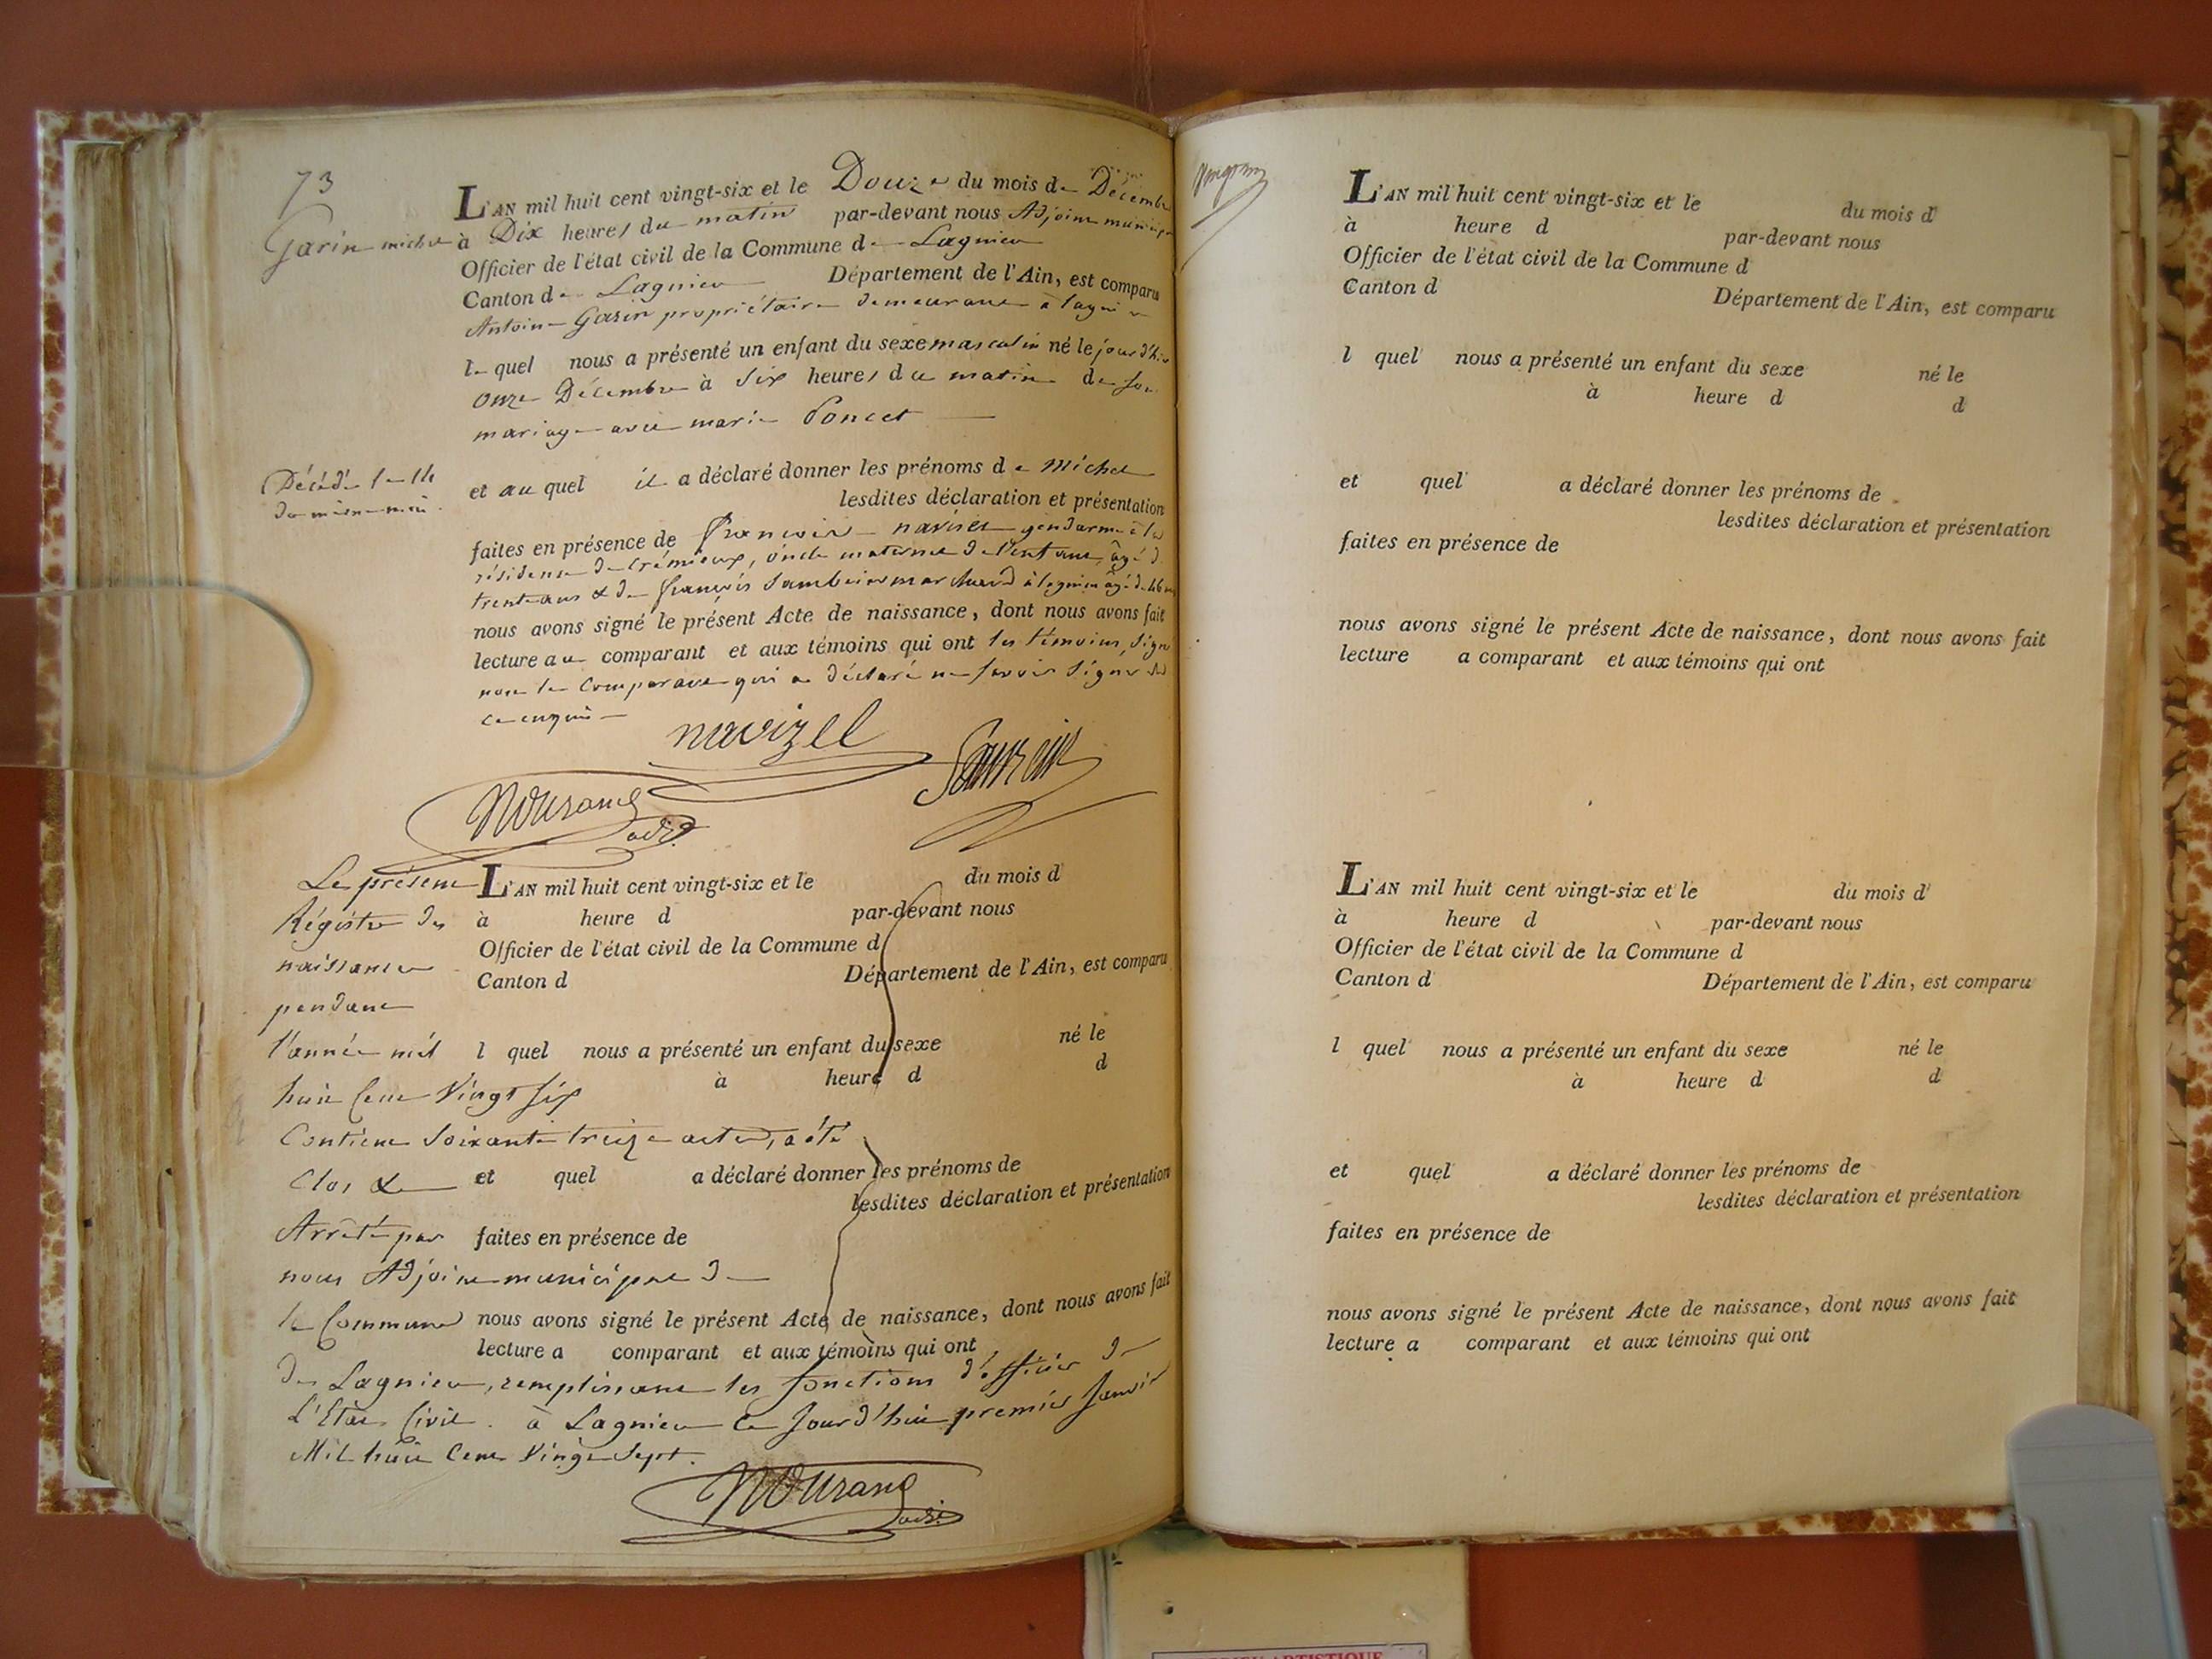 73
Garin michel
L'AN mil huit cent vingt-six et le Douze du mois de Décembre
à Dix heures du matin par-devant nous Adjoint municipal
Officier de l'état civil de la Commune de Lagnieu
Canton de Lagnieu Département de l'Ain, est comparu
Antoine Garin propriétaire demeurant à lagnieu
le quel nous a présenté un enfant du sexe masculin né le jour d'hier
onze Décembre à Six heures du matin de son
mariage avec marie Poncet
Décédé le 14
du même mois.
et au quel il a déclaré donner les prénoms de Michel
lesdites déclaration et présentation
faites en présence de françois gendarme à la
résidence de Crémieux, oncle maternel de l'enfant, âgé de
trente ans & de françois marchand à lagnieu âgé de 46 ans
nous avons signé le présent Acte de naissance, dont nous avons fait
lecture au comparant et aux témoins qui ont les témoins, Signé
non le Comparant qui a déclaré ne savoir Signer de
ce enquis
navizel
adj.
Le présent
Régistre des
naissances
pendant
l'année mil
huit Cent Vingt Six
Contient Soixante treize actes, a été
Clos &
Arrêté par
nous Adjoint municipal de
la Commune
de Lagnieu, remplissant les fonctions d'officier de
L'Etat Civil. à Lagnieu ce Jourd'hui premier Janvier
Mil huit Cent Vingt Sept.
adj.
L'AN mil huit cent vingt-six et le du mois d
à heure d par-devant nous
Officier de l'état civil de la Commune d
Canton d Département de l'Ain, est comparu
l quel nous a présenté un enfant du sexe né le
à heure d d
et quel a déclaré donner les prénoms de
lesdites déclaration et présentation
faites en présence de
nous avons signé le présent Acte de naissance, dont nous avons fait
lecture a comparant et aux témoins qui ont
L'AN mil huit cent vingt-six et le du mois d
à heure d par-devant nous
Officier de l'état civil de la Commune d
Canton d Département de l'Ain, est comparu
l quel nous a présenté un enfant du sexe né le
à heure d d
et quel a déclaré donner les prénoms de
lesdites déclaration et présentation
faites en présence de
nous avons signé le présent Acte de naissance, dont nous avons fait
lecture a comparant et aux témoins qui ont
L'AN mil huit cent vingt-six et le du mois d
à heure d par-devant nous
Officier de l'état civil de la Commune d
Canton d Département de l'Ain, est comparu
l quel nous a présenté un enfant du sexe né le
à heure d d
et quel a déclaré donner les prénoms de
lesdites déclaration et présentation
faites en présence de
nous avons signé le présent Acte de naissance, dont nous avons fait
lecture a comparant et aux témoins qui ont
ARTISTIQUE